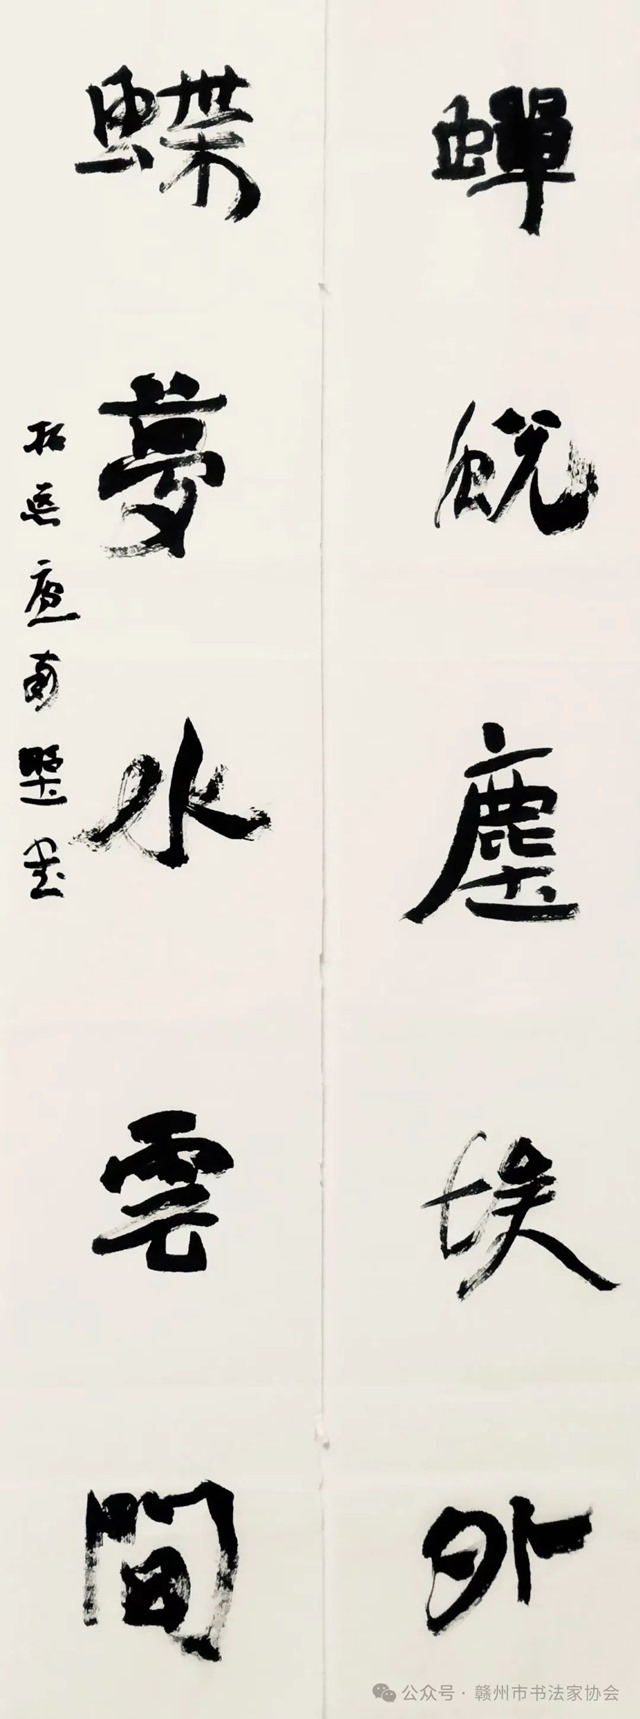 蟬蛻塵埃外
蝶夢水雲間
拓無庵南野書
公众号·赣州市书法家协会